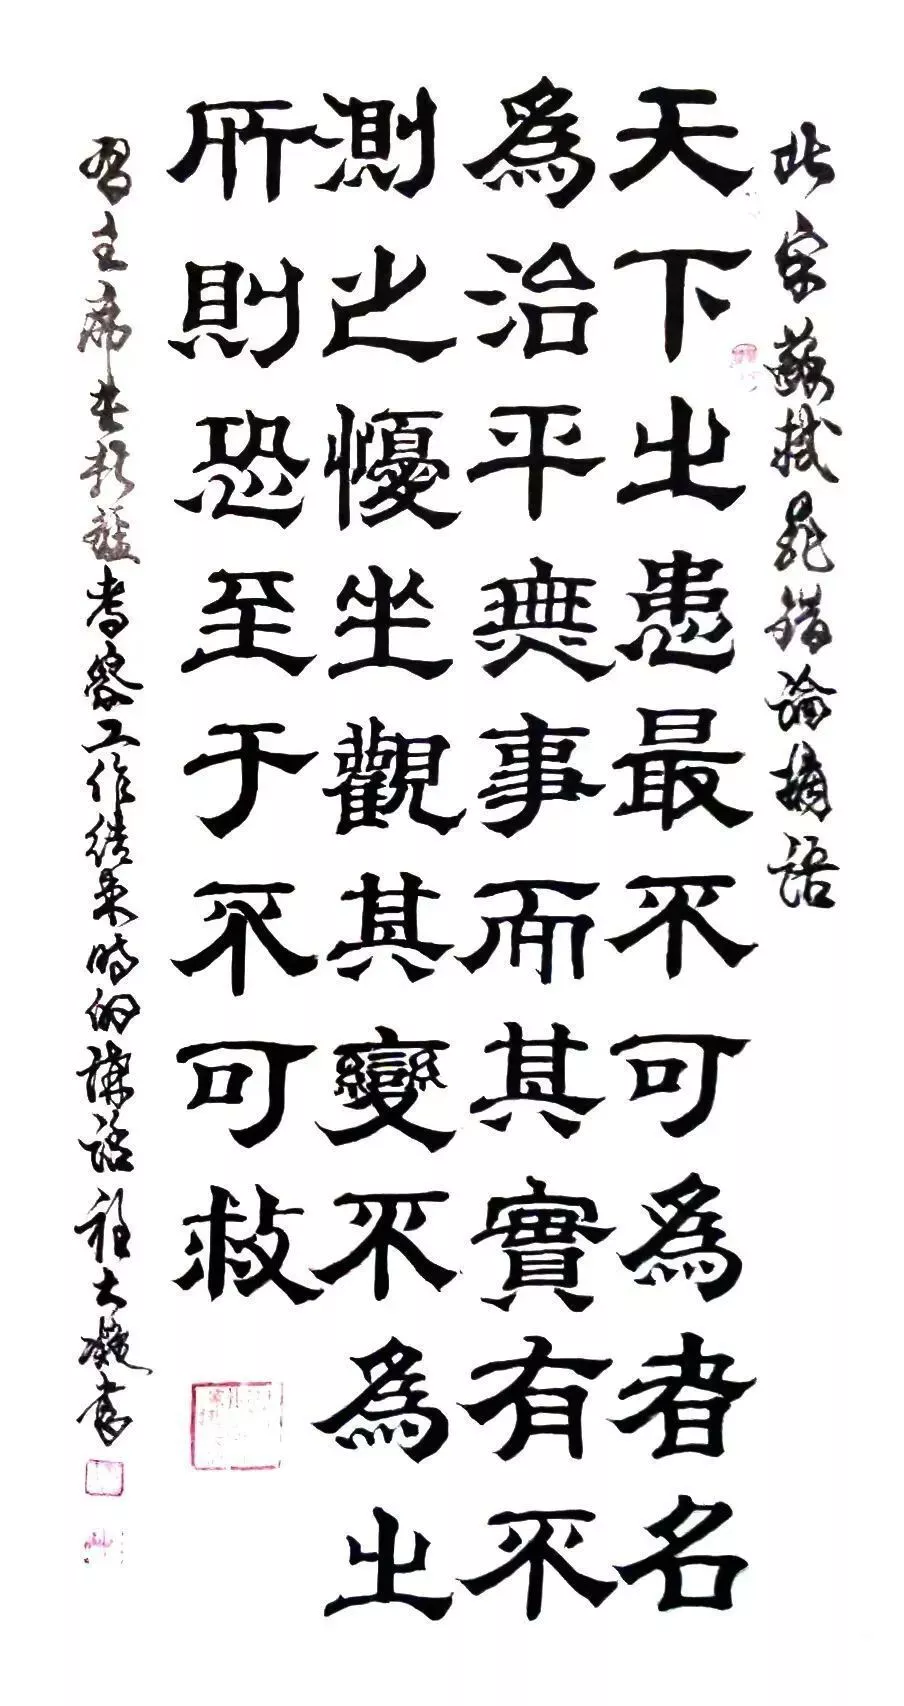 此宋蘇軾晁錯論摘語
天下之患最不可爲者名
爲治平無事而其實有不
測之懮坐觀其變不爲之
所則恐至于不可救
習主席在新疆考察工作結束時的講話程大書